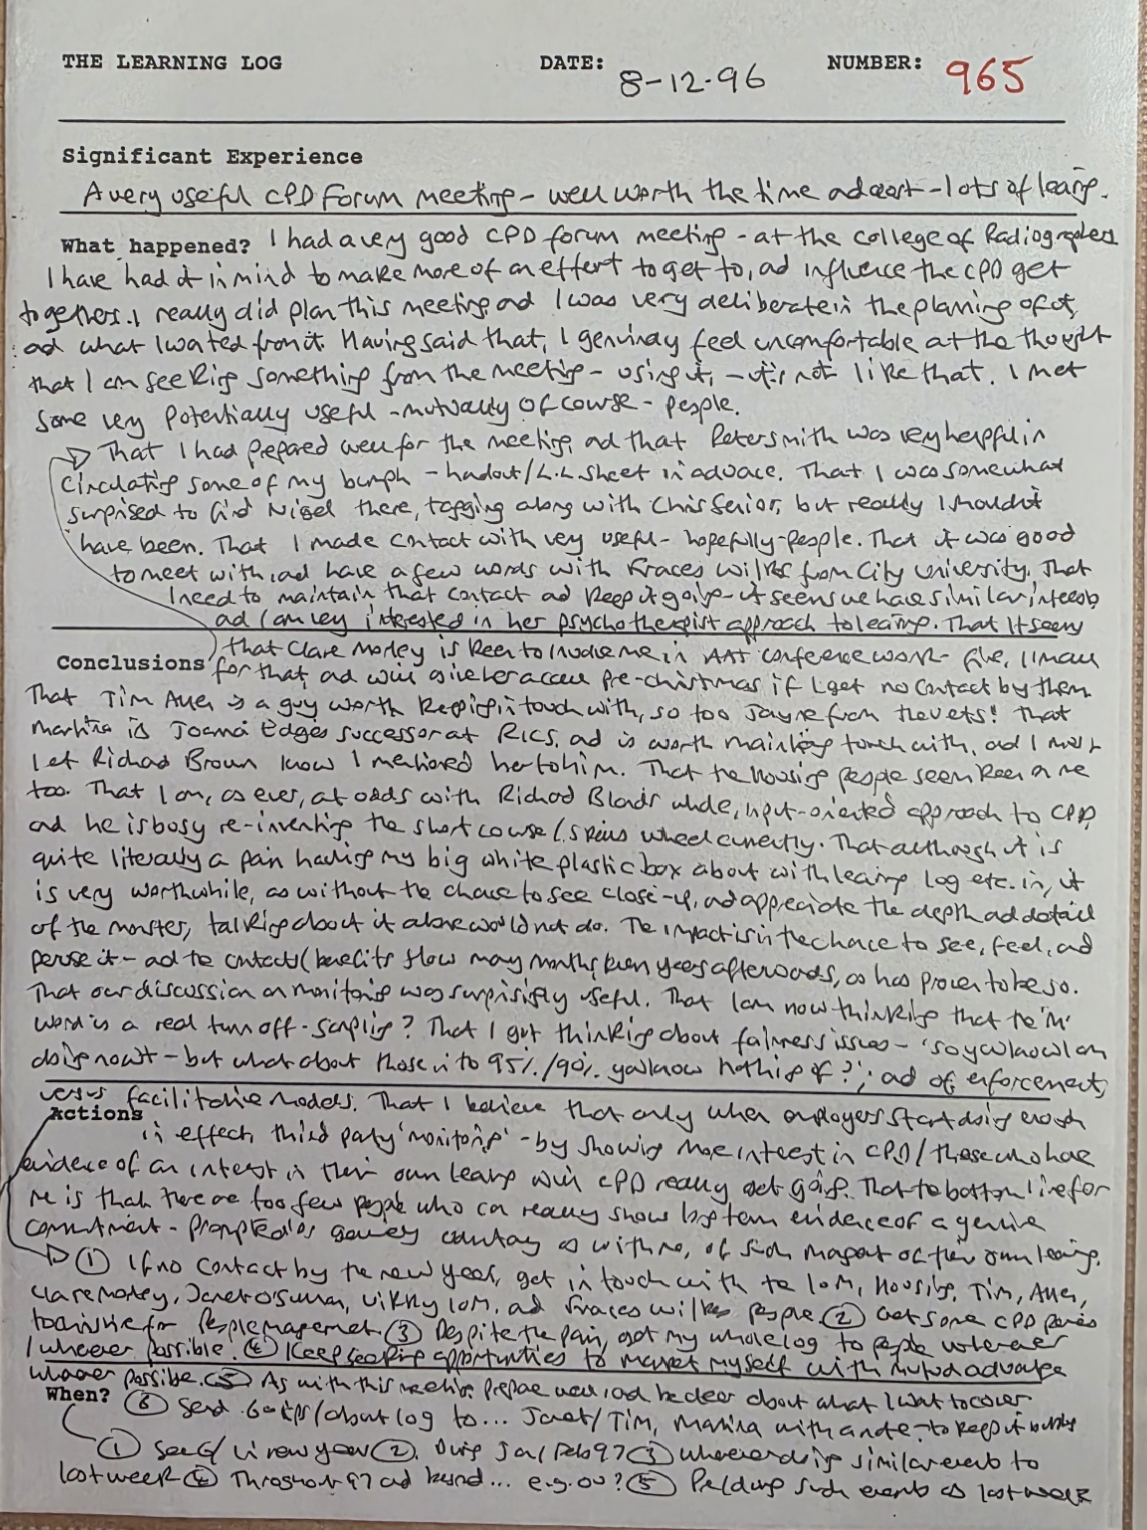 THE LEARNING LOG DATE: 8-12-96 NUMBER: 965
Significant Experience
A very useful CPD Forum meeting - well worth the time ad cost - lots of learing.
What happened? I had a very good CPD forum meeting - at the college of Radiographers
I have had it in mind to make more of an effort to get to, ad influence the CPD get
togethers. I really did plan this meeting ad I was very deliberate in the planning of it,
ad what I wanted from it. Having said that, I genuinely feel uncomfortable at the thought
that I am seeking something from the meeting - using it, - it's not like that. I met
some very potentially useful - mutually of course - people.
That I had prepared well for the meeting, ad that Peter Smith was very helpful in
circulating some of my bumph - handout/L.L sheet in advance. That I was somewhat
surprised to find Nigel there, tagging along with Chris Senior, but really I shouldn't
have been. That I made contact with very useful - hopefully - people. That it was good
to meet with, ad have a few words with Frances Wilkes from City University. That
I need to maintain that contact ad keep it going - it seems we have similar interests,
ad I am very interested in her psychotherapist approach to learing. That it seems
Conclusions that Clare Morley is keen to involve me in AAT conference work - fine,
for that, ad will give her a call pre-christmas if I get no contact by then.
That Tim is a guy worth keeping in touch with, so too Jayne from the vets! That
Martina is Joanna Edges successor at RICS, ad is worth maintaining touch with, ad I must
let Richard Brown know I mentioned her to him. That the housing people seem keen on me
too. That I am, as ever, at odds with Richard whole, input-oriented approach to CPD,
ad he is busy re-inventing the short course/skills wheel currently. That although it is
quite literally a pain having my big white plastic box about with learing log etc. in, it
is very worthwhile, as without the chance to see close-up, ad appreciate the depth ad detail
of the monster, talking about it alone would not do. The impact is in the chance to see, feel, ad
peruse it - ad the contacts/benefits flow many months, even years afterwards, as has proven to be so.
That our discussion on monitoring was surprisingly useful. That I am now thinking that the 'M'
word is a real turn off - sampling? That I got thinking about fairness issues - 'so you know I am
doing nowt - but what about those in to 95%/90% you know nothing of?'; ad of enforcement,
versus facilitative models. That I believe that only when employers start doing
Actions in effect third party 'monitoring' - by showing more interest in CPD/those who have
evidence of an interest in their own learing will CPD really get going. That the bottom line for
me is that there are too few people who can really show long term evidence of a genuine
commitment - prompted as with me, of such of their own learing.
① If no contact by the new year, get in touch with the IoM, Housing, Tim,
Clare Morley, Vikky IoM, ad Frances Wilkes people. ② Get some CPD
for People Management. ③ Despite the pain, get my whole log to people wherever
/whenever possible. ④ Keep seeking opportunities to market myself with mutual advantage
whenever possible. ⑤ As with this meeting prepare well ad be clear about what I want to cover
When? ⑥ Send /about log to ... Janet/Tim, Martina with a note - to keep it
① in new year ② During Jan/Feb 97 ③ Whenever doing similar event to
last week ④ Throughout 97 ad beyond... e.g. OU? ⑤ Pre/during such events as last week